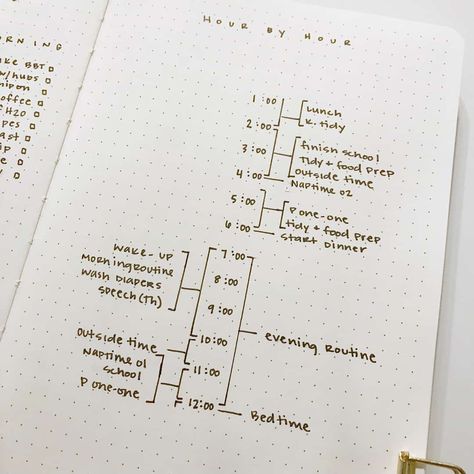 HOUR BY HOUR
1:00
Lunch
K. tidy
2:00
3:00
finish school
Tidy + food prep
outside time
4:00
Naptime 02
5:00
P one-one
tidy + food prep
6:00
start dinner
wake-up
Morning routine
wash Diapers
speech (Th)
7:00
8:00
9:00
10:00
evening routine
outside time
Naptime 01
school
P one-one
11:00
12:00
Bedtime
BBT
w/hubs
H2O